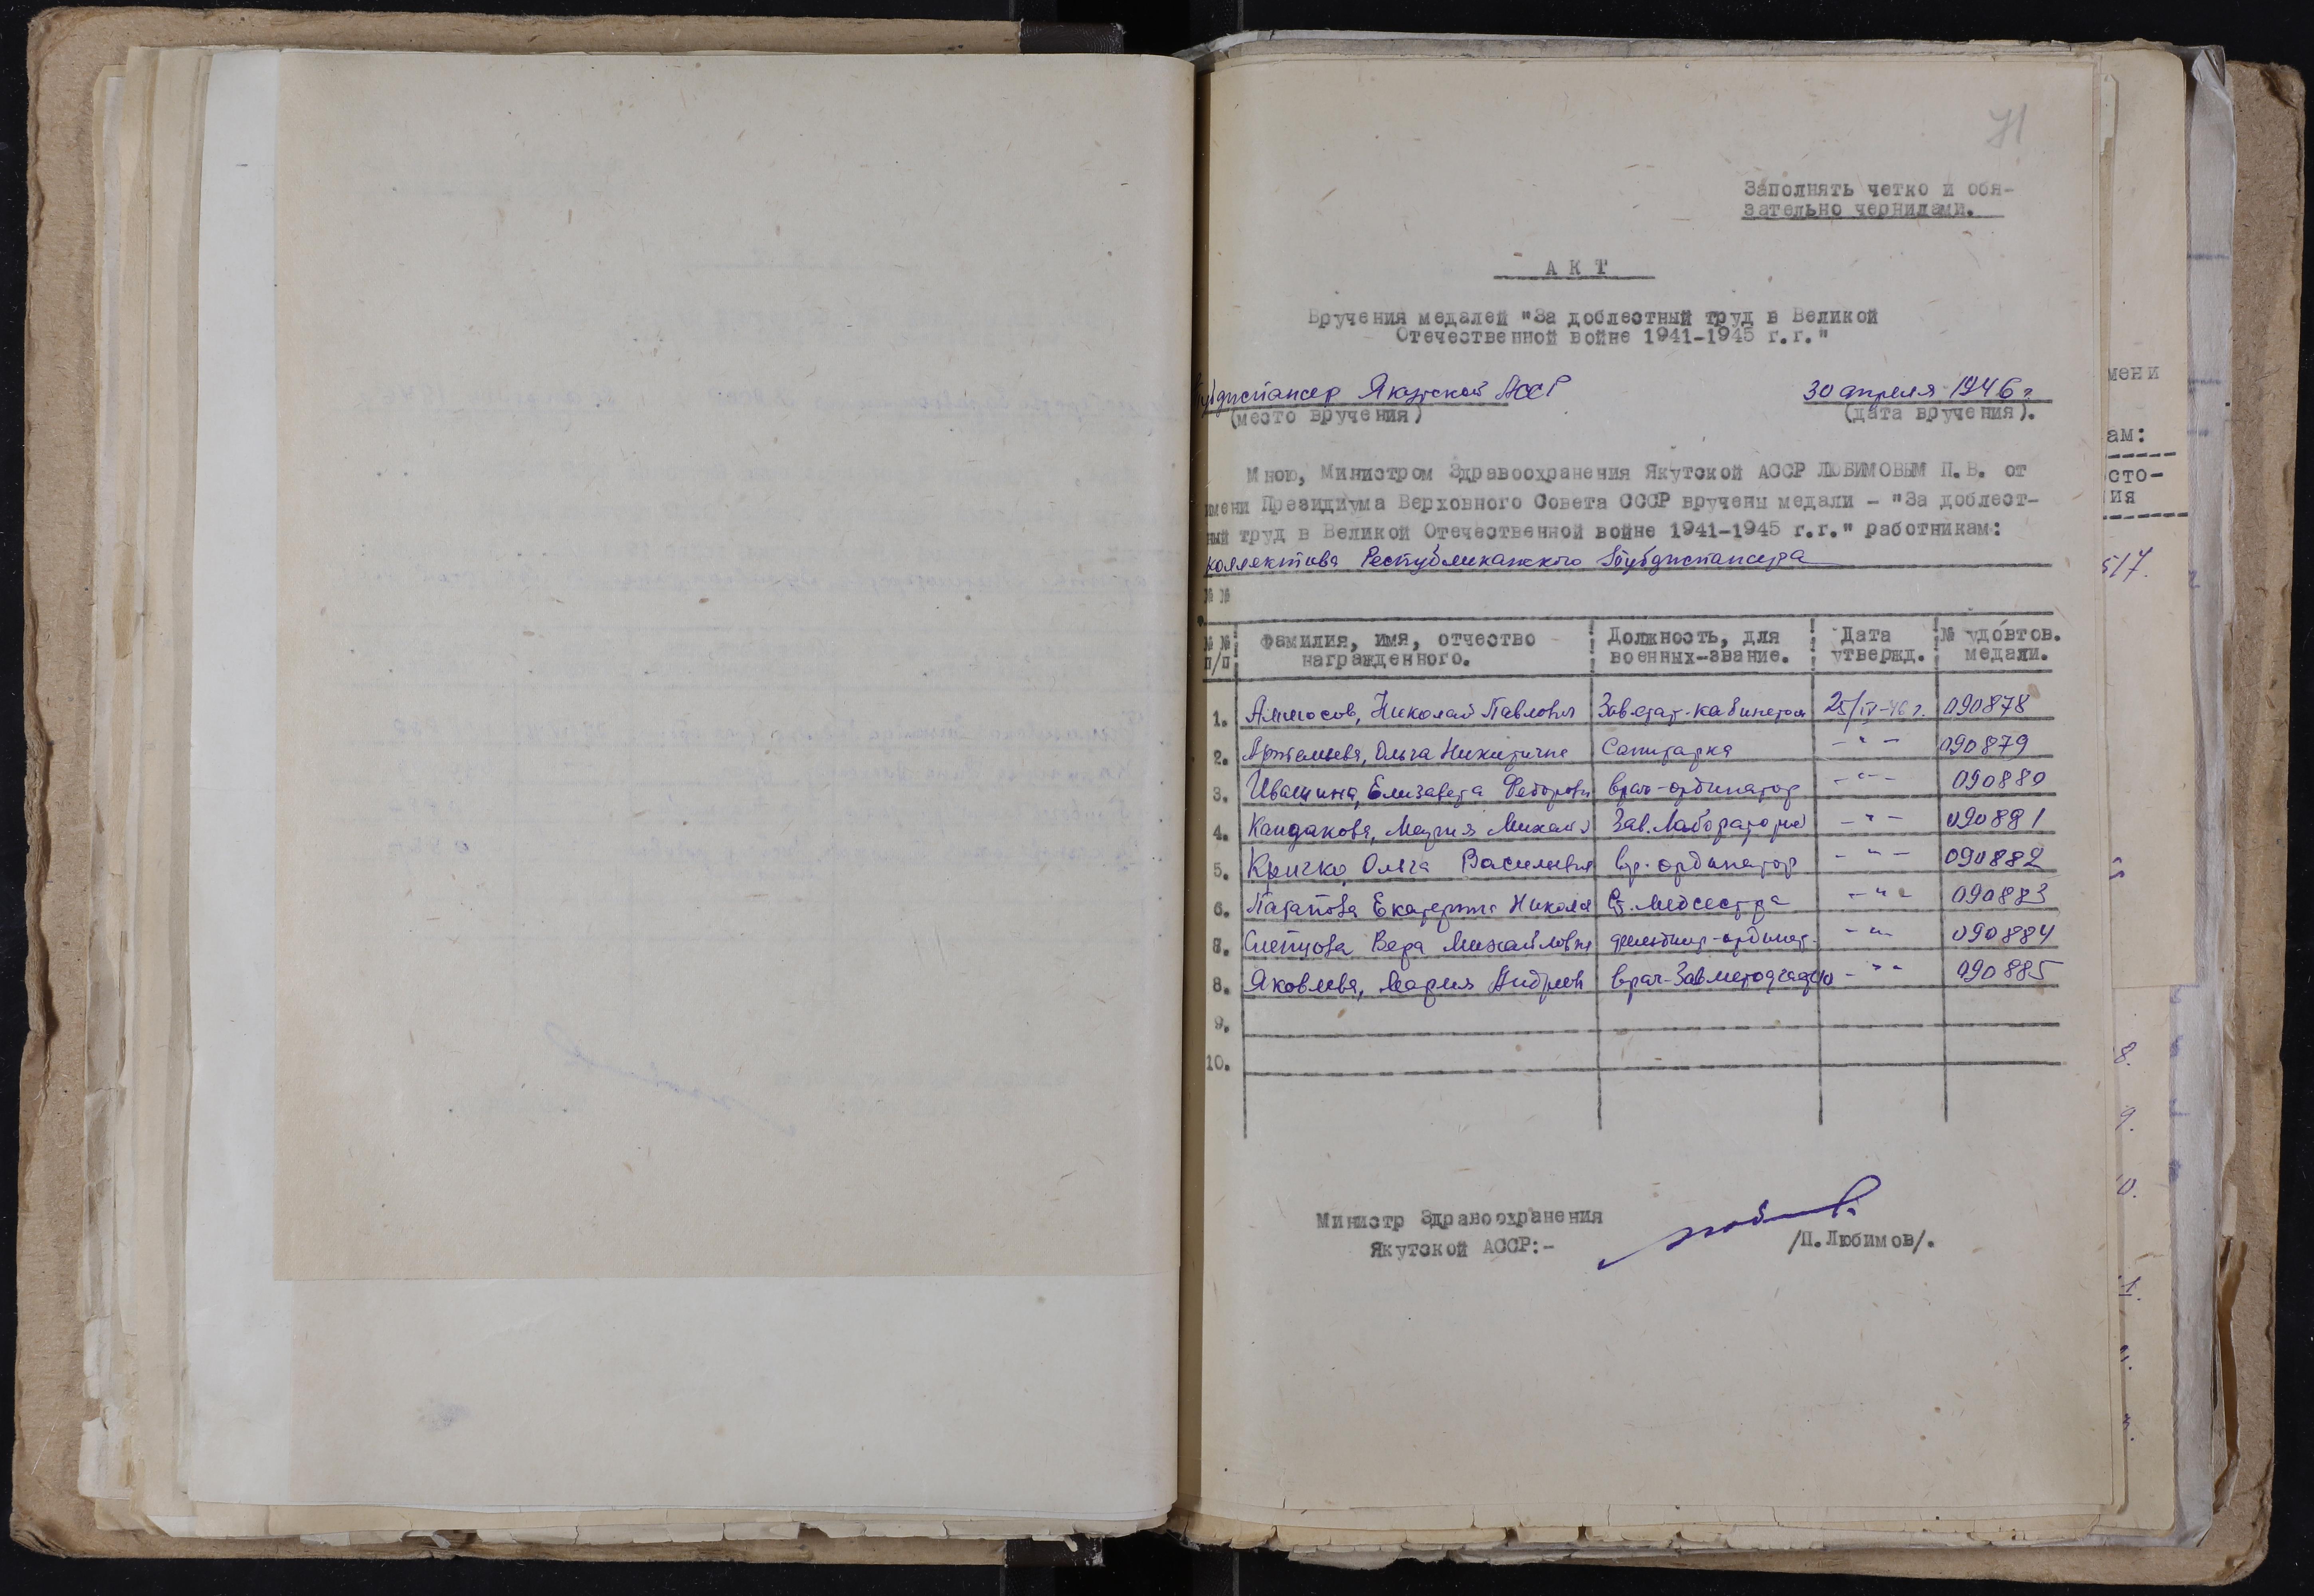 71
Заполнять четко и обя-
зательно чернилами.
АКТ
Вручения медалей "За доблестный труд в Великой
Отечественной войне 1941-1945 г.г."
Тубдиспансер Якутской АССР 30 апреля 1946 г
(место вручения) (дата вручения).
Мною, Министром Здравоохранения Якутской АССР ЛЮБИМОВЫМ П.В. от
имени Президиума Верховного Совета СССР вручены медали - "За доблест-
ный труд в Великой Отечественной войне 1941-1945 г.г." работникам:
коллектива Республиканского Тубдиспансера
№ №
№ № п/п Фамилия, имя, отчество награжденного. Должность, для военных-звание. Дата утвержд. № удовтов. медали.
1. Аммосов, Николай Павлович Зав.стат-кабинетом 25/IV-46 г. 090878
2. Артемьева, Ольга Никитична Санитарка -"- 090879
3. Ивашина, Елизавета Федоровн врач-ординатор -"- 090880
4. Кандакова, Мария Михайл Зав. Лабораторией -"- 090881
5. Кричко, Ольга Васильевна вр. ординатор -"- 090882
6. Патапова Екатерина Никола Ст. медсестра -"- 090883
8. Слепцова Вера Михайловна -"- 090884
8. Яковлева, Мария Андреев врач-Зав -"- 090885
9.
10.
Министр Здравоохранения
Якутской АССР:- /П.Любимов/.
мени
ам:
сто-
ия
517.
8.
9.
10.